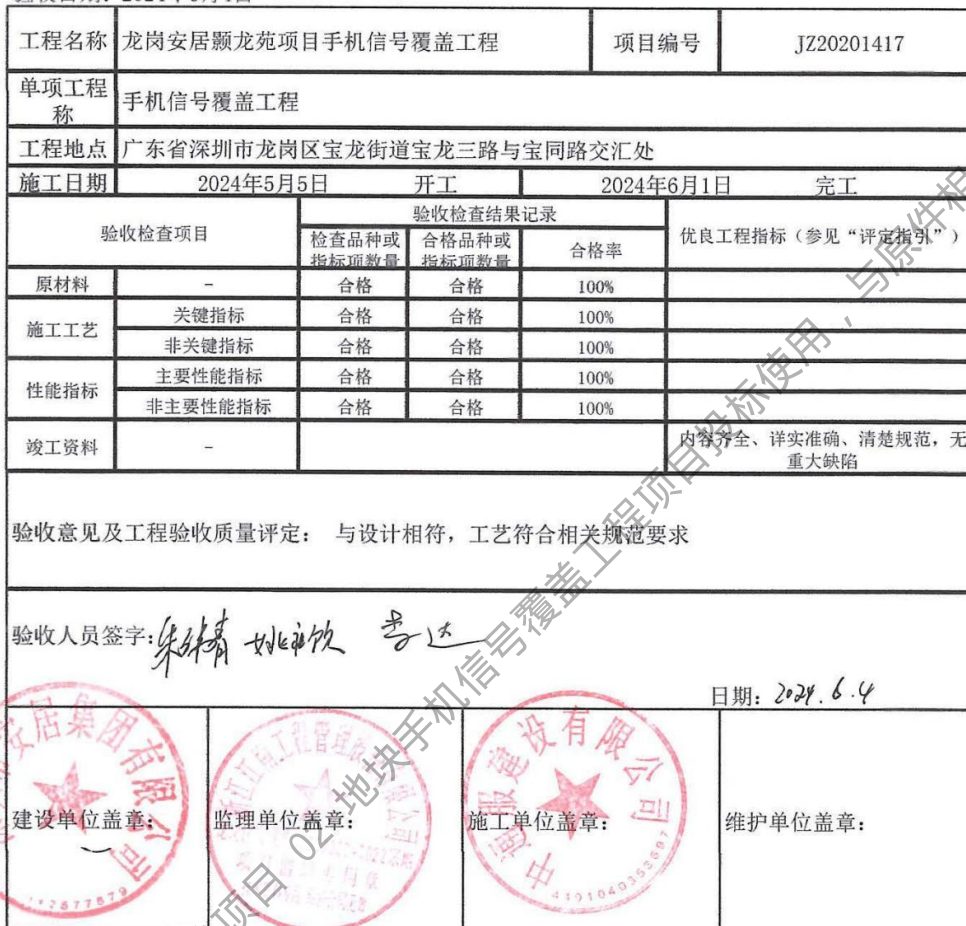 工程名称 龙岗安居颢龙苑项目手机信号覆盖工程 项目编号 JZ20201417
单项工程称 手机信号覆盖工程
工程地点 广东省深圳市龙岗区宝龙街道宝龙三路与宝同路交汇处
施工日期 2024年5月5日 开工 2024年6月1日 完工
验收检查项目 验收检查结果记录 优良工程指标（参见“评定指引”）
检查品种或指标项数量 合格品种或指标项数量 合格率
原材料 - 合格 合格 100%
施工工艺 关键指标 合格 合格 100%
非关键指标 合格 合格 100%
性能指标 主要性能指标 合格 合格 100%
非主要性能指标 合格 合格 100%
竣工资料 - 内容齐全、详实准确、清楚规范，无重大缺陷
验收意见及工程验收质量评定： 与设计相符，工艺符合相关规范要求
验收人员签字: 李达
日期: 2024.6.4
建设单位盖章: 监理单位盖章: 施工单位盖章: 维护单位盖章:
安居集团有限公司
建设有限公司
项目 02 地块手机信号覆盖工程项目投标使用，与原件相